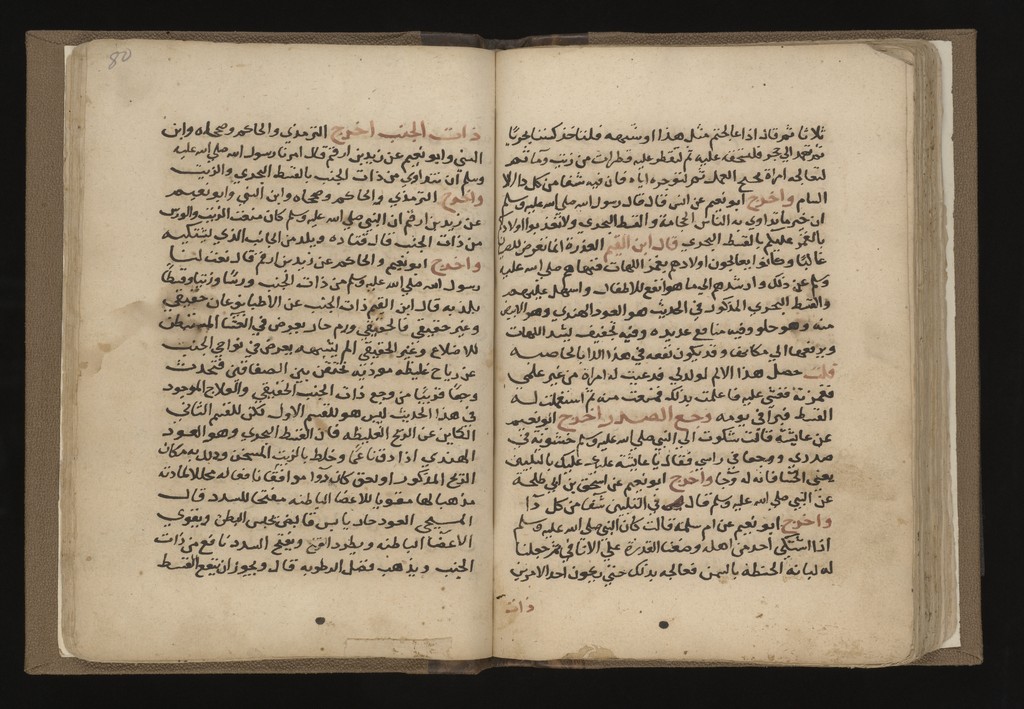 ثلاثا ثم قال اذا عالجتم مثل هذا او شبهه فلتاخذ كستا بحريا
ثم تعمد الي حجر فلتسحقه عليه ثم لتقطر عليه قطرات من زيت وما ثم
لتعالجه امراة ثم لتوجره اياه فان فيه شفا من كل دا الا
السام واخرج ابو نعيم عن انس قال قال رسول الله صلي الله عليه وسلم
ان خير ما تداوي به الناس الحجامة والقسط البحري ولا تعذبوا اولادكم
بالغمز عليكم بالقسط البحري قال ابن القيم العذرة انما تعرض للصبيان
غالبا وكانوا يعالجون اولادهم بغمز اللهات فنهاهم صلي الله عليه
وسلم عن ذلك وارشدهم الي ما هو انفع للاطفال واسهل عليهم
والقسط البحري المذكور في الحديث هو العود الهندي وهو الابيض
منه وهو حلو وفيه منافع عديده وفيه تجفيف يشد اللهات
ويرفعها الي مكانها وقد يكون نفعه في هذا الدا بالخاصيه
قلت حصل هذا الالم لولدلي فدعيت له امراة من غير علمي
فغمزته فغشي عليه فاعلمت بذلك فمنعت منه ثم استعملت له
القسط فبرا في يومه وجع الصدر اخرج ابو نعيم
عن عايشة قالت شكوت الي النبي صلي الله عليه وسلم خشونة في
صدري ووجعا في راسي فقال يا عايشة عليك بالتلبين
يعني الحسا فانه له وجا واخرج ابو نعيم عن اسحق بن ابي طلحة
عن النبي صلي الله عليه وسلم قال في التلبين شفا من كل دا
واخرج ابو نعيم عن ام سلمة قالت كان النبي صلي الله عليه وسلم
اذا اشتكي احد من اهله وضعنا القدرة علي الاثافي ثم جعلنا
له لباب الحنطة بالسمن فعالجه بذلك حتي يكون احد الامرين
ذات
80
ذات الجنب اخرج الترمذي والحاكم وصححاه وابن
السني وابو نعيم عن زيد بن ارقم قال امرنا رسول الله صلي الله عليه
وسلم ان نتداوي من ذات الجنب بالقسط البحري والزيت
واخرج الترمذي والحاكم وصححاه وابن السني وابو نعيم
عن زيد بن ارقم ان النبي صلي الله عليه وسلم كان ينعت الزيت والورس
من ذات الجنب قال قتاده ويلد من الجانب الذي يشتكيه
واخرج ابو نعيم والحاكم عن زيد بن ارقم قال نعت لنا
رسول الله صلي الله عليه وسلم من ذات الجنب ورسا وزيتا وقسطا
يلد به قال ابن القيم ذات الجنب عن الاطبا نوعان حقيقي
وغير حقيقي فالحقيقي ورم حار يعرض في الغشا المستبطن
للاضلاع وغير الحقيقي الم يشبهه يعرض في نواحي الجنب
عن رياح غليظه موذيه تحتقن بين الصفاقتي فتحدث
وجعا قريبا من وجع ذات الجنب الحقيقي والعلاج الموجود
في هذا الحديث ليس هو للقسم الاول لكن للقسم الثاني
الكاين عن الريح الغليظه فان القسط البحري وهو العود
الهندي اذا دق ناعما وخلط بالزيت المسخن ودلك به مكان
الريح المذكور او لعق كان دوا موافقا نافعا له محللا لمادته
مذهبا لها مقويا للاعضا الباطنه مفتحا للسدد قال
المسيحي العود حار يابس قابض يحبس البطن ويقوي
الاعضا الباطنه ويطرد الريح ويفتح السدد نافع من ذات
الجنب ويذهب فضل الرطوبه قال ويجوز ان ينفع القسط